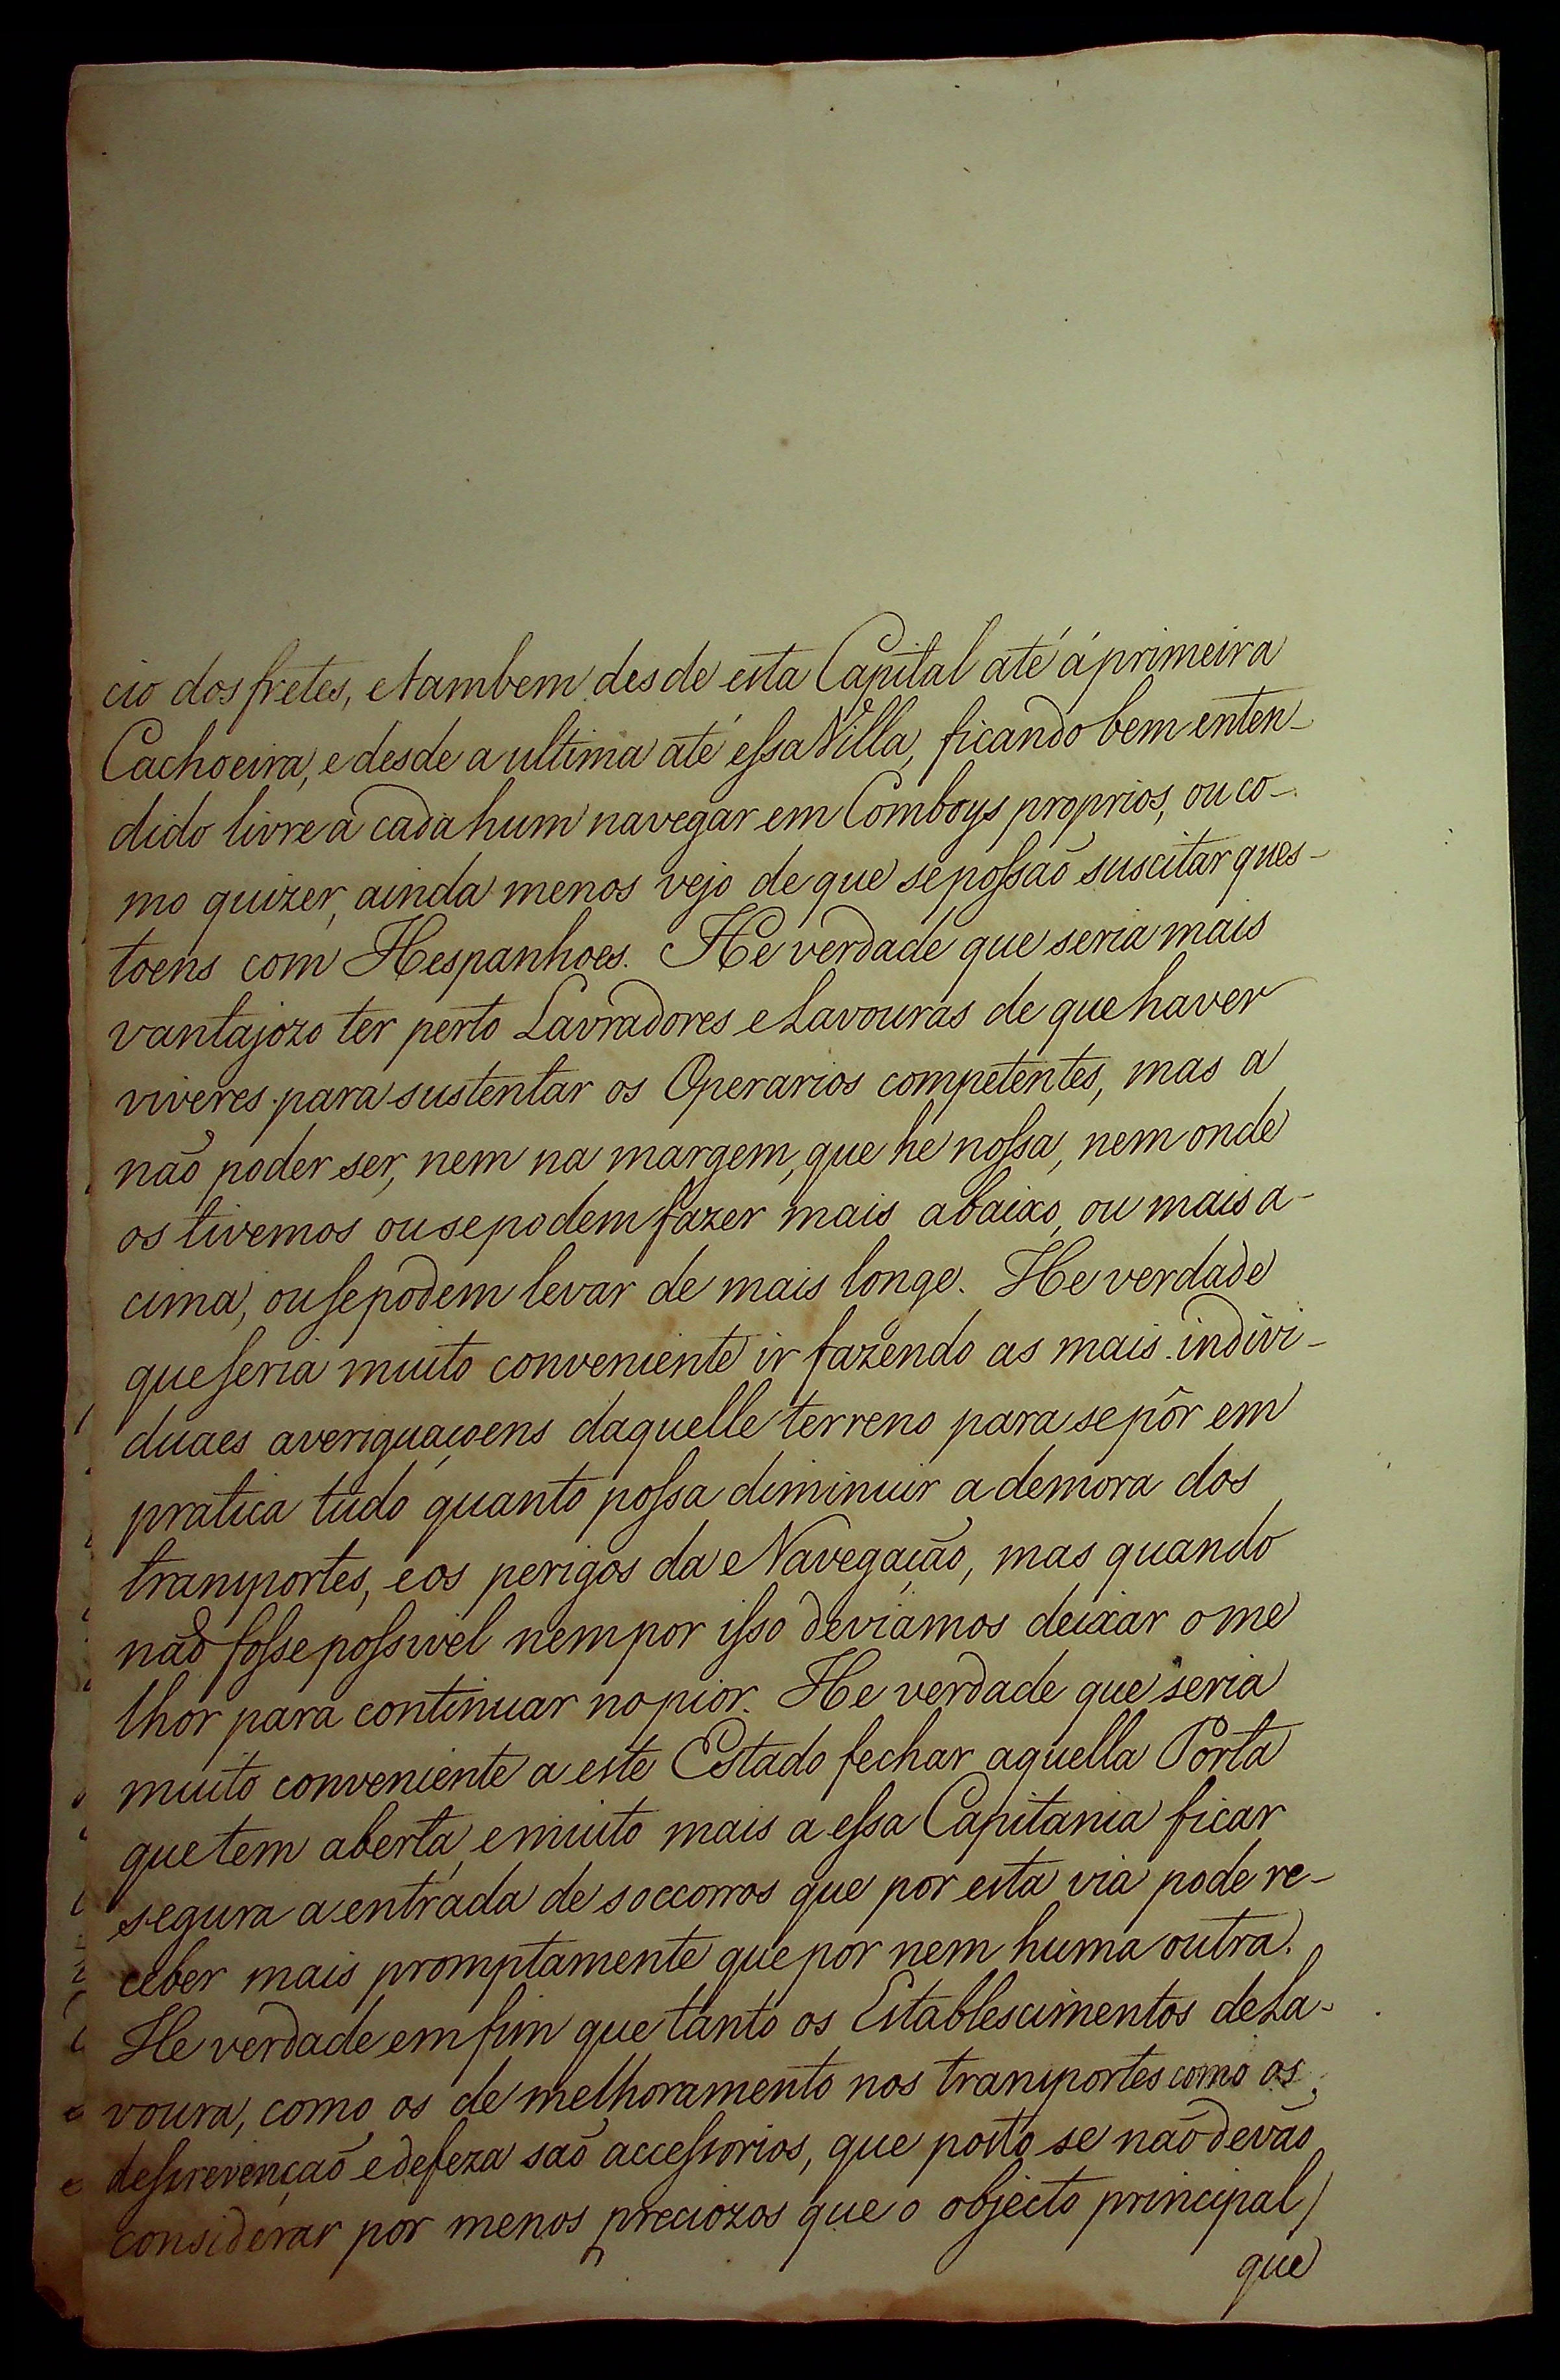 cio dos fretes, e tambem desde esta Capital até á primeira
Cachoeira, e desde a ultima até essa Villa, ficando bem enten-
dido livre a cada hum navegar em Comboys proprios, ou co-
mo quizer, ainda menos vejo de que se possaõ suscitar ques-
toens com Hespanhoes. He verdade que seria mais
vantajozo ter perto Lavradores e Lavouras de que haver
viveres para sustentar os Operarios competentes, mas a
não poder ser, nem na margem, que he nossa, nem onde
os tivemos ou se podem fazer mais abaixo, ou mais a-
cima, ou se podem levar de mais longe. He verdade
que seria muito conveniente ir fazendo as mais indivi-
duaes averiguaçoens daquelle terreno para se pôr em
pratica tudo quanto possa diminuir a demora dos
transportes, e os perigos da Navegação, mas quando
naõ fosse possivel nem por isso deviamos deixar o me
lhor para continuar no pior. He verdade que seria
muito conveniente a este Estado fechar aquella Porta
que tem aberta, e muito mais a essa Capitania ficar
segura a entrada de soccorros que por esta via pode re-
ceber mais promptamente que por nem huma outra.
He verdade em fim que tanto os Establescimentos de La-
voura, como os de melhoramento nos transportes como os
de prevençaõ e defeza saõ accessorios, que posto se naõ devaõ
considerar por menos preciozos que o objecto principal,
que